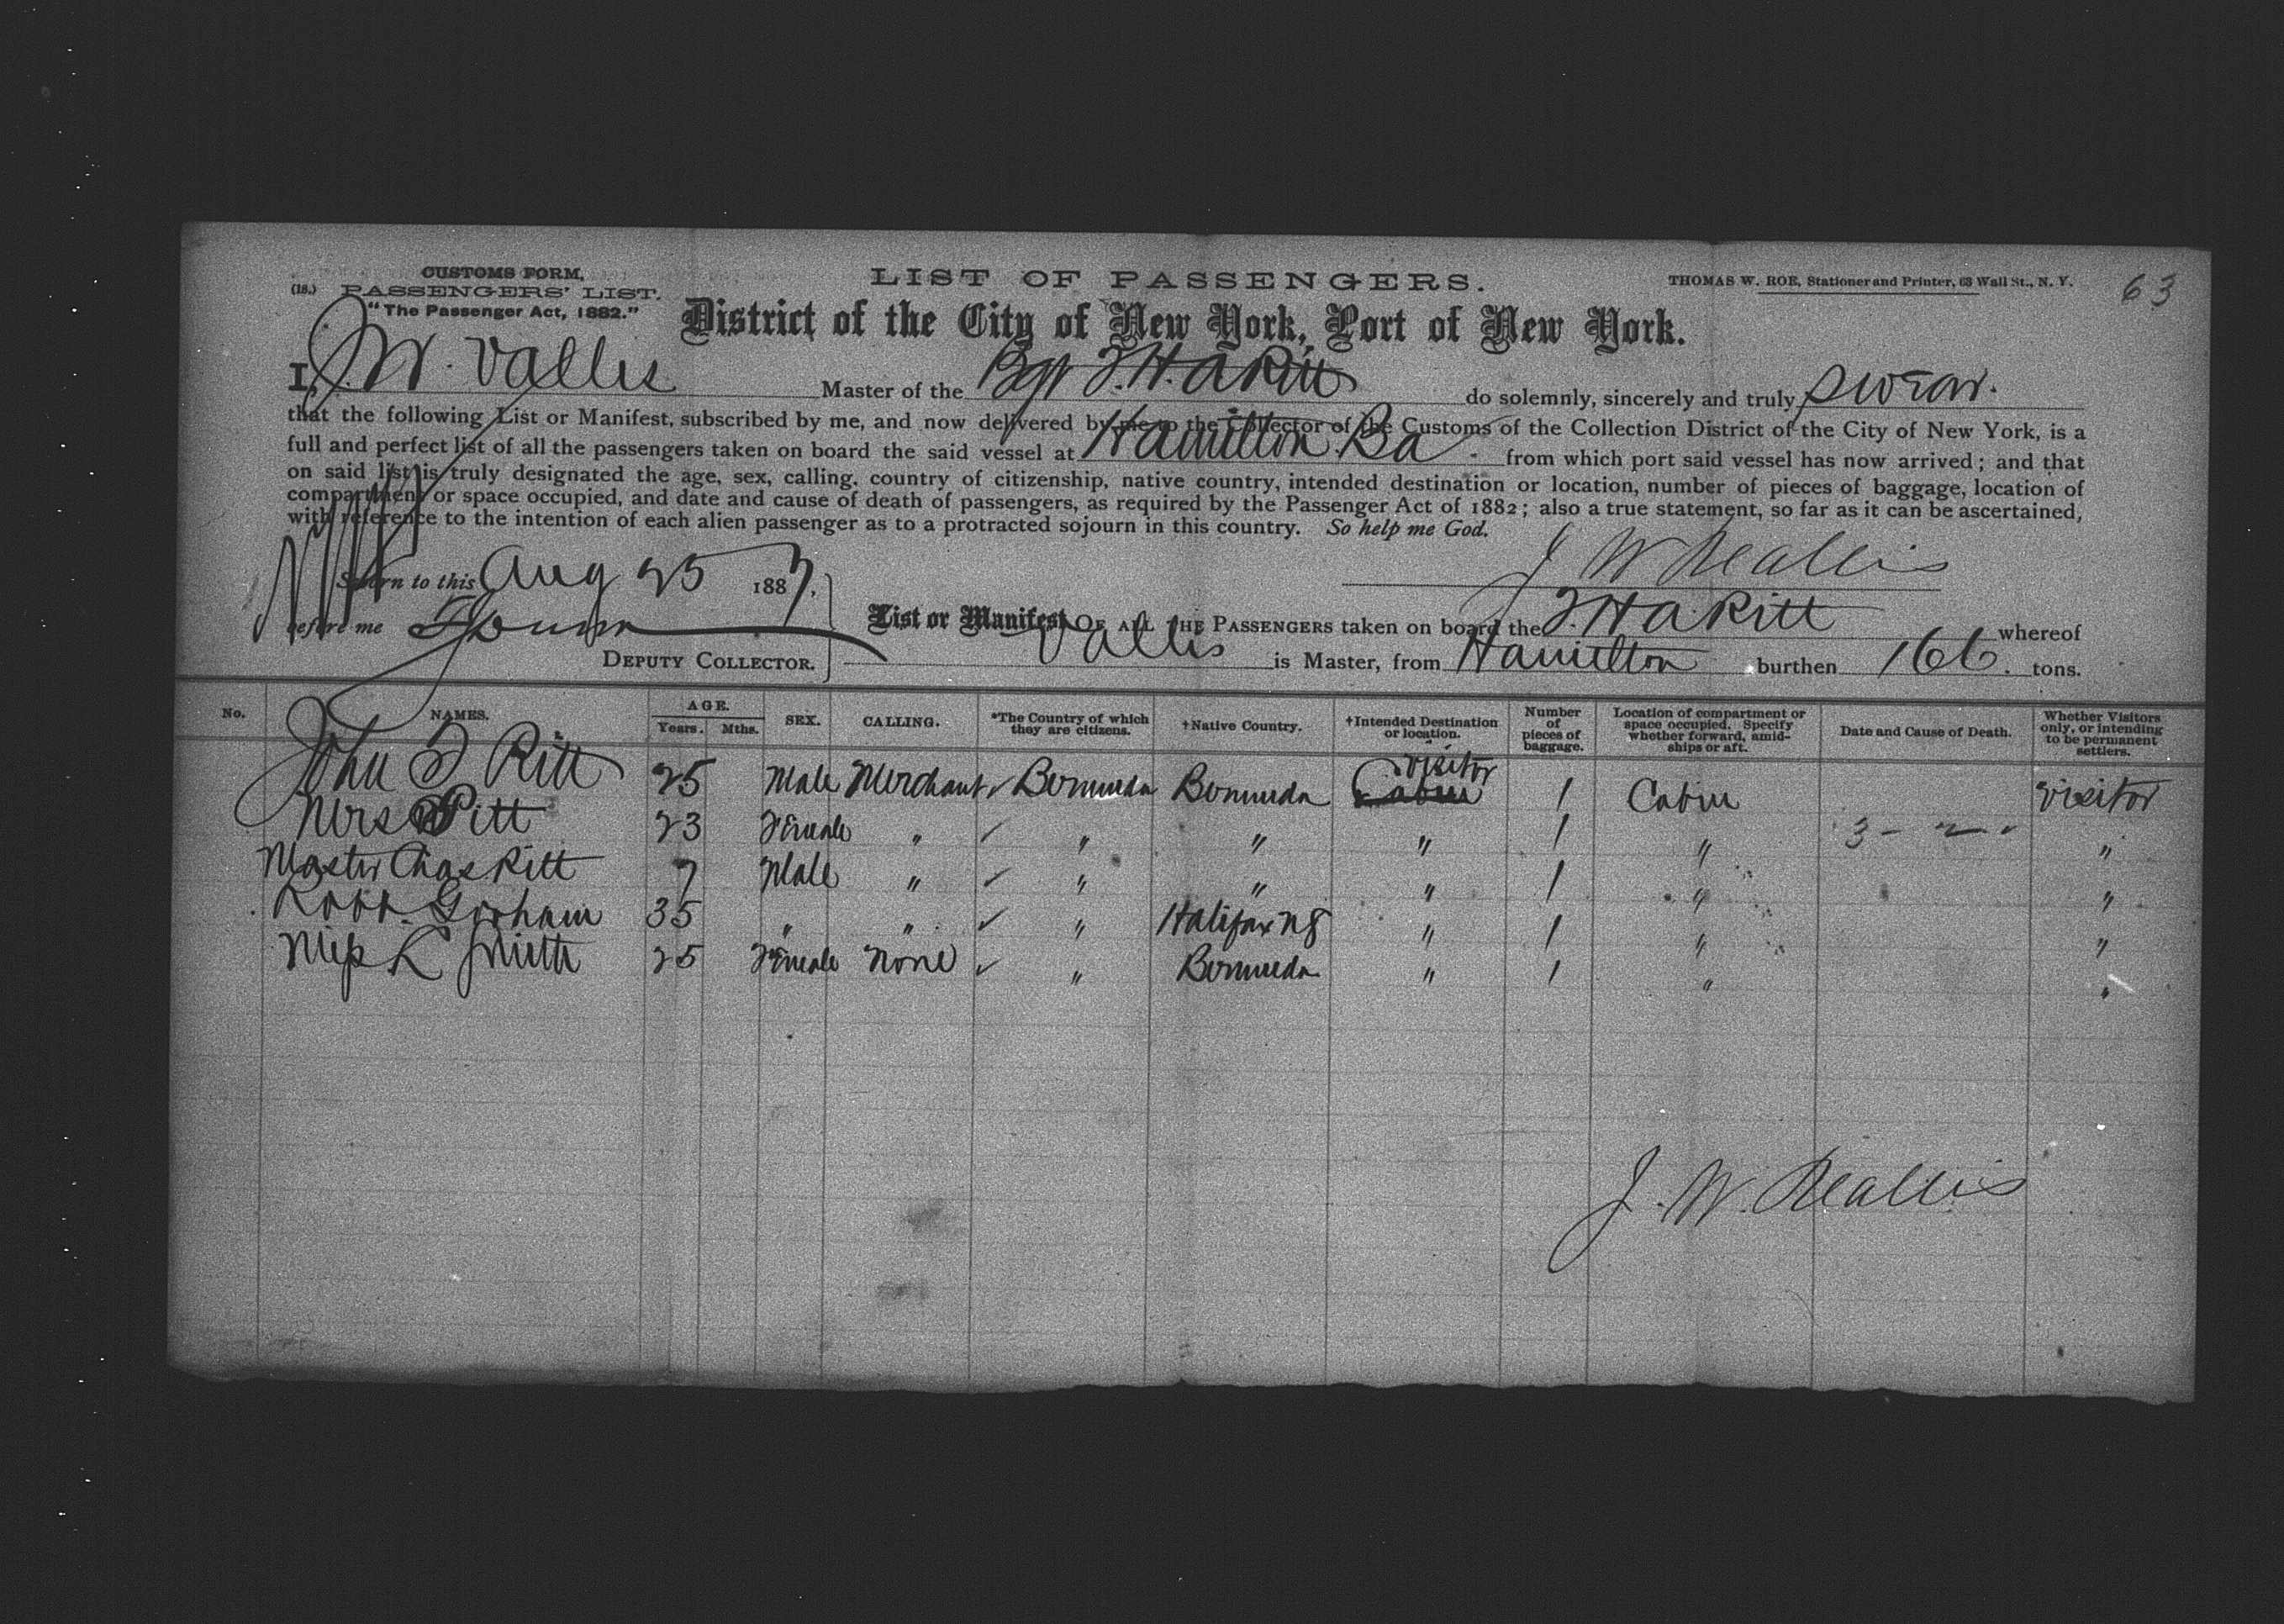 CUSTOMS FORM,
(18.) PASSENGERS' LIST.
"The Passenger Act, 1882."
LIST OF PASSENGERS.
THOMAS W. ROE, Stationer and Printer, 63 Wall St., N. Y.
63
District of the City of New York, Port of New York.
I, J. W. Vallis Master of the Bgt T. H. A Pitt do solemnly, sincerely and truly swear.
that the following List or Manifest, subscribed by me, and now delivered by me to the Collector of the Customs of the Collection District of the City of New York, is a
full and perfect list of all the passengers taken on board the said vessel at Hamilton Ba. from which port said vessel has now arrived; and that
on said list is truly designated the age, sex, calling, country of citizenship, native country, intended destination or location, number of pieces of baggage, location of
compartment or space occupied, and date and cause of death of passengers, as required by the Passenger Act of 1882; also a true statement, so far as it can be ascertained,
with reference to the intention of each alien passenger as to a protracted sojourn in this country. So help me God.
Sworn to this Aug 25 1887,
J W Vallis
before me
List or Manifest OF ALL THE PASSENGERS taken on board the T. H A. Pitt whereof
DEPUTY COLLECTOR.
Vallis is Master, from Hamilton burthen 166. tons.
No. NAMES. AGE. Years. Mths. SEX. CALLING. *The Country of which they are citizens. †Native Country. †Intended Destination or location. Number of pieces of baggage. Location of compartment or space occupied. Specify whether forward, amidships or aft. Date and Cause of Death. Whether Visitors only, or intending to be permanent settlers.
John T Pitt 25 Male Merchant ✓ Bermuda Bermuda Cabin Visitor 1 Cabin Visitor
Mrs Pitt 23 Female " ✓ " " " 1 " "
Master Chas Pitt 7 Male " ✓ " " " 1 " "
Robt. Gorham 35 " " ✓ " Halifax NS " 1 " "
Miss L Smith 25 Female None ✓ " Bermuda " 1 " "
J. W. Vallis